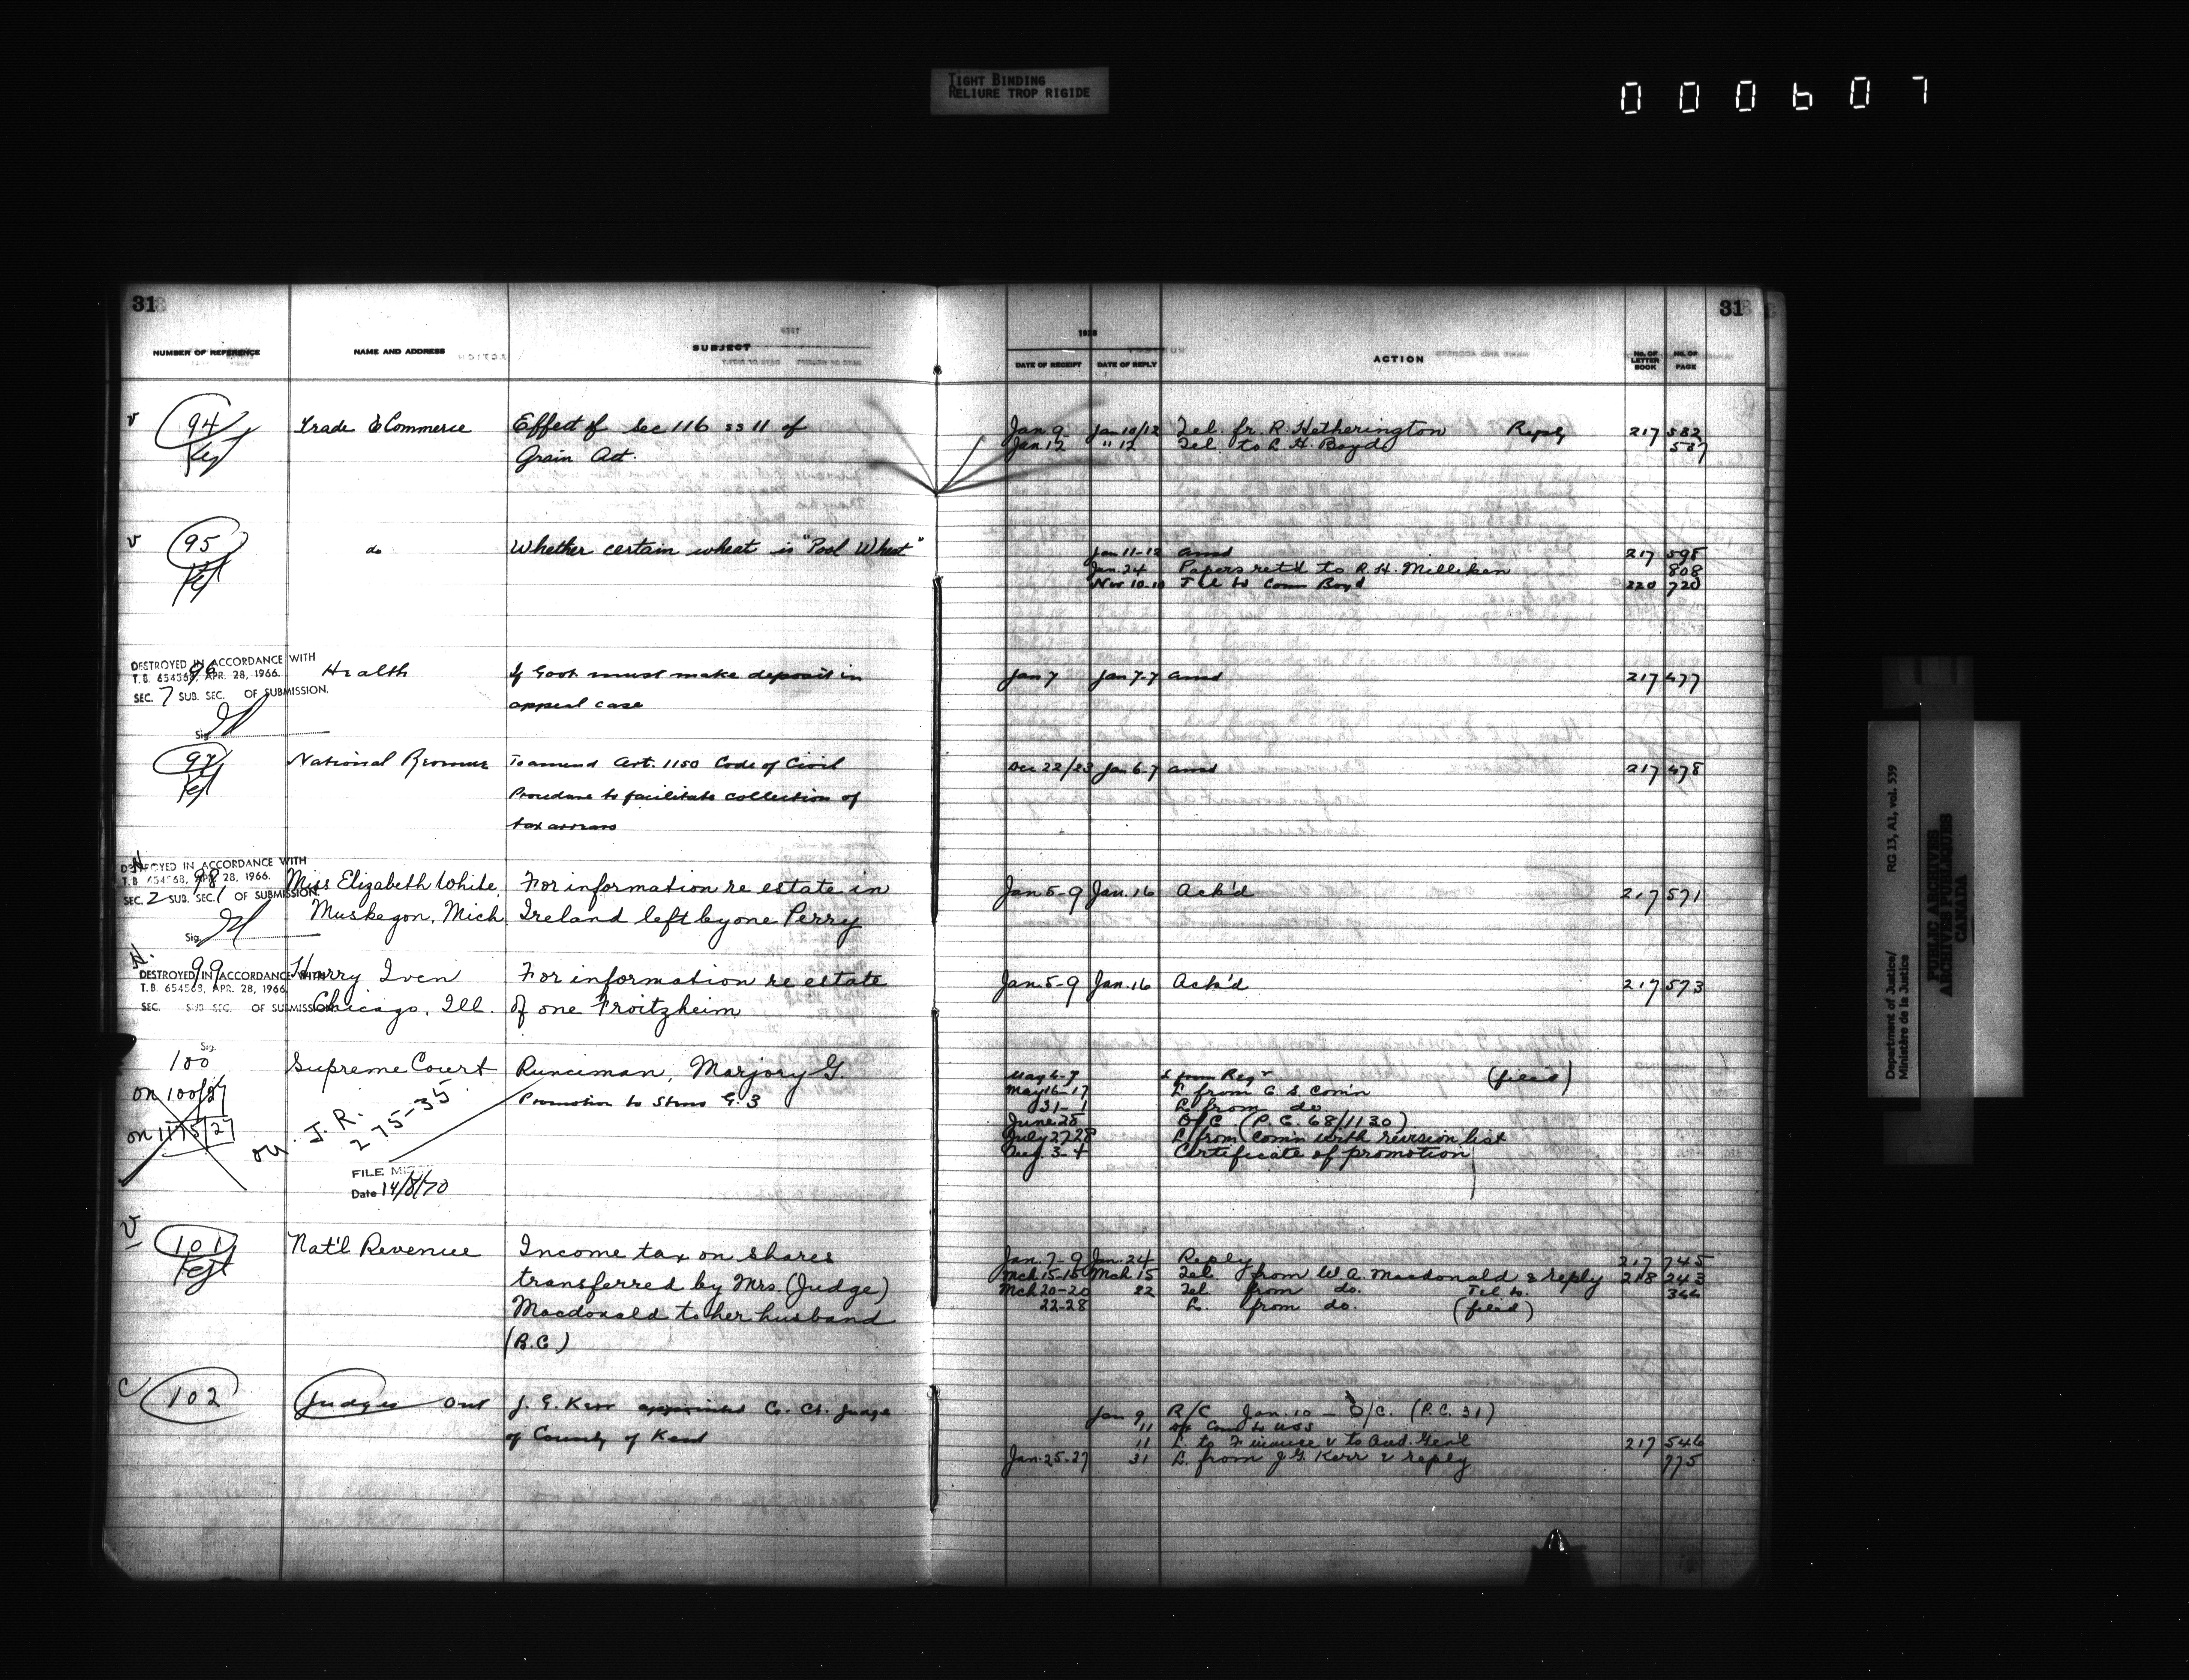 TIGHT BINDING
RELIURE TROP RIGIDE
000607
31
31
NUMBER OF REFERENCE NAME AND ADDRESS SUBJECT
1928
DATE OF RECEIPT DATE OF REPLY ACTION No. OF LETTER BOOK No. OF PAGE
94 Trade & Commerce Effect of Sec 116 ss 11 of Jan. 9 Jan 10/12 Tel. fr. R. Hetherington Reply 217 582
Grain Act. Jan. 12 " 12 Tel. to L. H. Boyd 587
95 do Whether certain wheat is "Pool Wheat" Jan 11-12 ansd 217 595
Jan. 24 Papers ret'd to R. H. Milliken 808
Nov 10-10 Tel to Comr Boyd 220 720
DESTROYED IN ACCORDANCE WITH
T.B. 654568, APR. 28, 1966.
SEC. 7 SUB. SEC. OF SUBMISSION.
Sig.
96 Health If Govt must make deposit in Jan 7 Jan 7-7 ansd 217 477
appeal case
97 National Revenue To amend Art. 1150 Code of Civil Dec 22/23 Jan 6-7 ansd 217 478
Procedure to facilitate collection of
tax arrears
DESTROYED IN ACCORDANCE WITH
T.B. 654568, APR. 28, 1966.
SEC. 2 SUB. SEC. 1 OF SUBMISSION.
Sig.
98 Miss Elizabeth White, For information re estate in Jan 5-9 Jan. 16 Ack'd 217 571
Muskegon, Mich. Ireland left by one Perry
N.
DESTROYED IN ACCORDANCE WITH
T.B. 654568, APR. 28, 1966.
SEC. SUB SEC. OF SUBMISSION
Sig.
99 Harry Iven For information re estate Jan. 5-9 Jan. 16 Ack'd 217 573
Chicago, Ill. of one Froitzheim
100 Supreme Court Runciman, Marjory G
on 100/27 Promotion to Steno G. 3
on 1175/27
on J. R.
275-35
FILE
Date 14/8/70
May 6-7 L from Regr (filed)
May 16-17 L from C. S. Com'n
31-1 L from do
June 25 O/C (P.C. 68/1130)
July 27 28 L from Com'n with revision list
Aug. 3-4 Certificate of promotion
101 Nat'l Revenue Income tax on shares Jan. 7-9 Jan. 24 Reply 217 745
transferred by Mrs. (Judge) Mch 15-16 Mch 15 Tel. from W. A. Macdonald & reply 218 243
Macdonald to her husband Mch 20-20 22 Tel from do. Tel to. 344
(B.C.) 22-28 L. from do. (filed)
102 Judges Ont J. G. Kerr appointed Co. Ct. Judge Jan 9 R/C Jan. 10 - O/C. (P.C. 31)
of County of Kent 11 USS
11 L. to Finance & to Aud. Gen'l 217 546
Jan. 25-27 31 L. from J. G. Kerr & reply 775
Department of Justice/
Ministère de la Justice
RG 13, A1, vol. 539
PUBLIC ARCHIVES
ARCHIVES PUBLIQUES
CANADA